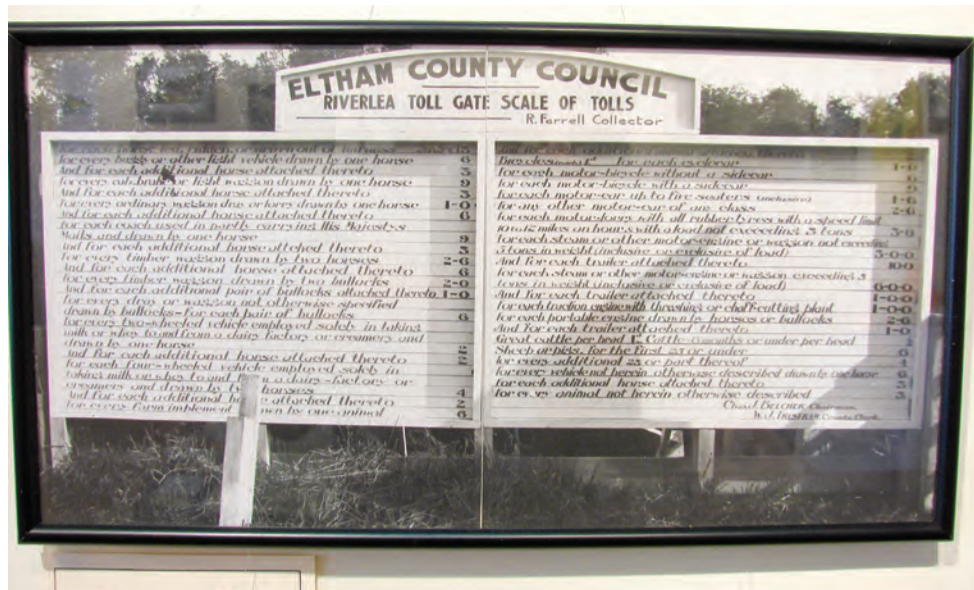 ELTHAM COUNTY COUNCIL
RIVERLEA TOLL GATE SCALE OF TOLLS
R. Farrell Collector
for every buggy or other light vehicle drawn by one horse 6
And for each additional horse attached thereto 3
for every cab, brake or light waggon drawn by one horse 9
And for each additional horse attached thereto 3
for every ordinary waggon dray or lorry drawn by one horse 1-0
And for each additional horse attached thereto 6
for each coach used in partly carrying His Majesty's
Mails and drawn by one horse 9
And for each additional horse attched thereto 3
for every timber waggon drawn by two horses 2-6
And for each additional horse attached thereto 6
for every timber waggon drawn by two bullocks 2-0
And for each additional pair of bullocks attached thereto 1-0
for every dray or waggon not otherwise specified
drawn by bullocks-for each pair of bullocks 6
for every two-wheeled vehicle employed solely in taking
milk or whey to and from a dairy factory or creamery and
drawn by one horse
And for each additional horse attached thereto 2
for each four-wheeled vehicle employed solely in
taking milk or whey to and a dairy-factory or
creamery and drawn by horses 4
And for each additional attached thereto 2
for every farm implement by one animal 6
And for each additional
Bicycles for each cyclecar 1-0
for each motor-bicycle without a sidecar 6
for each motor-bicycle with a sidecar 9
for each motor-car up to five seaters (inclusive) 1-6
for any other motor-car of any class 2-6
for each motor-lorry with all rubber tyres with a speed limit
10 to 12 miles an hour & with a load not exceeding 3 tons 3-0
for each steam or other motor-engine or waggon not exceeding
3 tons in weight (inclusive or exclusive of load) 3-0-0
And for each trailer attached thereto 10-0
for each steam or other motor-engine or waggon exceeding 3
tons in weight (inclusive or exclusive of load) 6-0-0
And for each trailer attached thereto 1-0-0
for each traction engine with thrashing or chaff-cutting plant 1-0-0
for each portable engine drawn by horses or bullocks 2-6
And for each trailer attached thereto 1-0
Great cattle per head 1d. Cattle 6 months or under per head
Sheep or pigs, for the first 25 or under 6
for every additional 25 or part thereof 4
for every vehicle not herein otherwise described drawn by one horse 6
for each additional horse attached thereto 3
for every animal not herein otherwise described 3
BELCHER Chairman
County Clerk